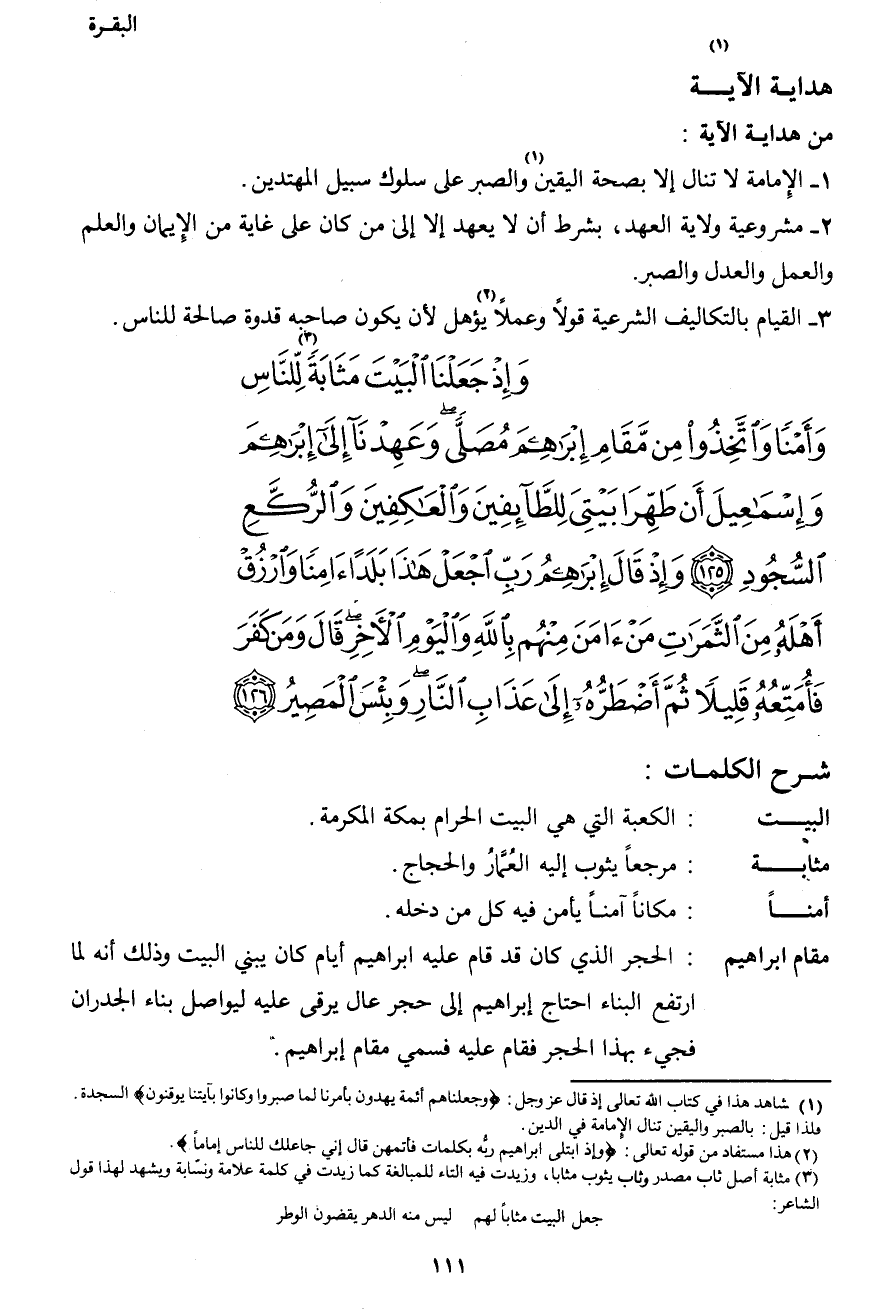 البقرة
(١)
هدايـة الآيـــة
من هدايـة الآية :
١ـ الإمامة لا تنال إلا بصحة اليقين(١) والصبر على سلوك سبيل المهتدين.
٢ـ مشروعية ولاية العهد، بشرط أن لا يعهد إلا إلى من كان على غاية من الإيمان والعلم
والعمل والعدل والصبر.
٣ـ القيام بالتكاليف الشرعية قولاً وعملاً(٢) يؤهل لأن يكون صاحبه قدوة صالحة للناس.
وَإِذْ جَعَلْنَا ٱلْبَيْتَ مَثَابَةً(٣) لِّلنَّاسِ
وَأَمْنًا وَٱتَّخِذُوا۟ مِن مَّقَامِ إِبْرَٰهِـۧمَ مُصَلًّى ۖ وَعَهِدْنَآ إِلَىٰٓ إِبْرَٰهِـۧمَ
وَإِسْمَـٰعِيلَ أَن طَهِّرَا بَيْتِىَ لِلطَّآئِفِينَ وَٱلْعَـٰكِفِينَ وَٱلرُّكَّعِ
ٱلسُّجُودِ ١٢٥ وَإِذْ قَالَ إِبْرَٰهِـۧمُ رَبِّ ٱجْعَلْ هَـٰذَا بَلَدًا ءَامِنًا وَٱرْزُقْ
أَهْلَهُۥ مِنَ ٱلثَّمَرَٰتِ مَنْ ءَامَنَ مِنْهُم بِٱللَّهِ وَٱلْيَوْمِ ٱلْـَٔاخِرِ ۖ قَالَ وَمَن كَفَرَ
فَأُمَتِّعُهُۥ قَلِيلًا ثُمَّ أَضْطَرُّهُۥٓ إِلَىٰ عَذَابِ ٱلنَّارِ ۖ وَبِئْسَ ٱلْمَصِيرُ ١٢٦
شـرح الكلمـات :
البيـــت : الكعبة التي هي البيت الحرام بمكة المكرمة.
مثابــــة : مرجعاً يثوب إليه العُمَّارُ والحجاج.
أمنــــاً : مكاناً آمنـاً يأمن فيه كل من دخله.
مقام ابراهيم : الحجر الذي كان قد قام عليه ابراهيم أيام كان يبني البيت وذلك أنه لما
ارتفع البناء احتاج إبراهيم إلى حجر عال يرقى عليه ليواصل بناء الجدران
فجيء بهذا الحجر فقام عليه فسمي مقام إبراهيم.
(١) شاهد هذا في كتاب الله تعالى إذ قال عز وجل: ﴿وجعلناهم أئمة يهدون بأمرنا لما صبروا وكانوا بآيتنا يوقنون﴾ السجدة.
ولذا قيل: بالصبر واليقين تنال الإمامة في الدين.
(٢) هذا مستفاد من قوله تعالى: ﴿وإذ ابتلى ابراهيم ربُّه بكلمات فأتمهن قال إني جاعلك للناس إماماً﴾.
(٣) مثابة أصل ثاب مصدر وثاب يثوب مثابا، وزيدت فيه التاء للمبالغة كما زيدت في كلمة علامة ونسّابة ويشهد لهذا قول
الشاعر:
جعل البيت مثاباً لهم ليس منه الدهر يقضون الوطر
١١١